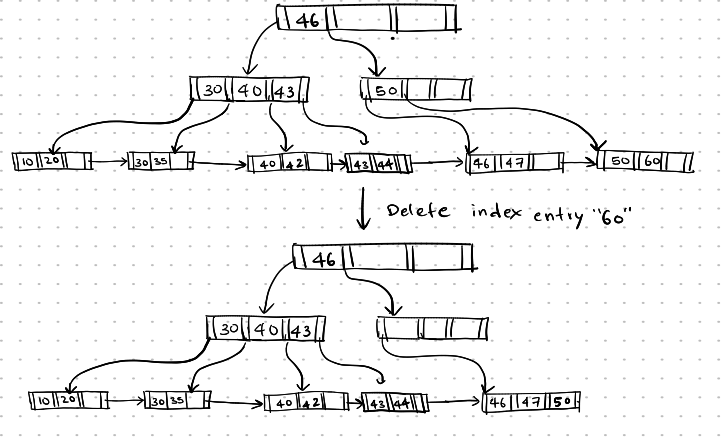 46
30 40 43 50
10 20 30 35 40 42 43 44 46 47 50 60
Delete index entry "60"
46
30 40 43
10 20 30 35 40 42 43 44 46 47 50